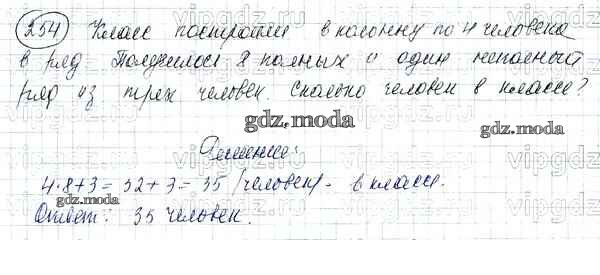 254) Класс построили в колонну по 4 человека
в ряд Получилось 8 полных и один неполный
ряд из трех человек. Сколько человек в классе?
gdz.moda
gdz.moda
Решение:
4·8+3=32+3=35 (человек)- в классе.
gdz.moda
Ответ: 35 человек.
gdz.moda